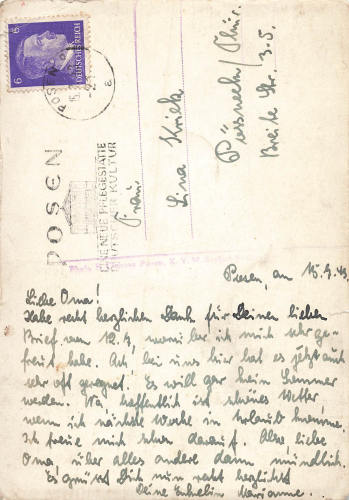 6
DEUTSCHES REICH
6
POSEN
POSEN
EINE NEUE PFLEGESTÄTTE
DEUTSCHER KULTUR
Frau
Lina
Pössneck/Thür.
Breite Str. 35.
Posen, am 15.9.43
Liebe Oma!
Habe recht herzlichen Dank für Deinen lieben
Brief vom 12.9, worüber ich mich sehr ge-
freut habe. Ach bei uns hier hat es jetzt auch
sehr oft geregnet. Es will gar kein Sommer
werden. Na, hoffentlich ist schönes Wetter,
wenn ich nächste Woche in Urlaub komme.
Ich freue mich schon darauf. Also, liebe
Oma, über alles andere dann mündlich.
Es grüsst Dich nun recht herzlichst
Deine Enkelin Marianne.